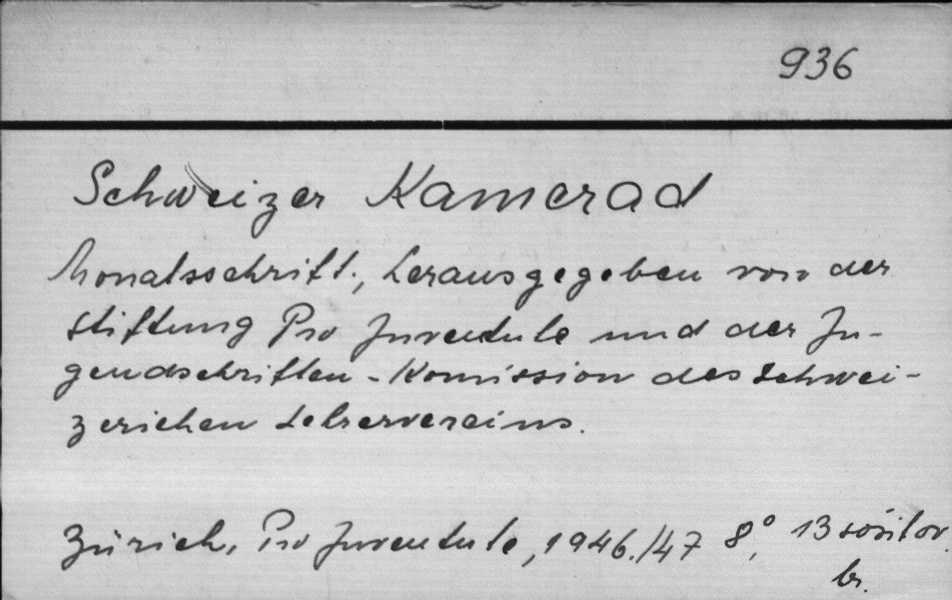 936
Schweizer Kamerad
Monatsschrift., herausgegeben von der
Stiftung Pro Juventute und der Ju-
gendschriften-Komission des Schwei-
zerichen Lehrervereins.
Zürich, Pro Juventute, 1946./47 8°, 13
br.